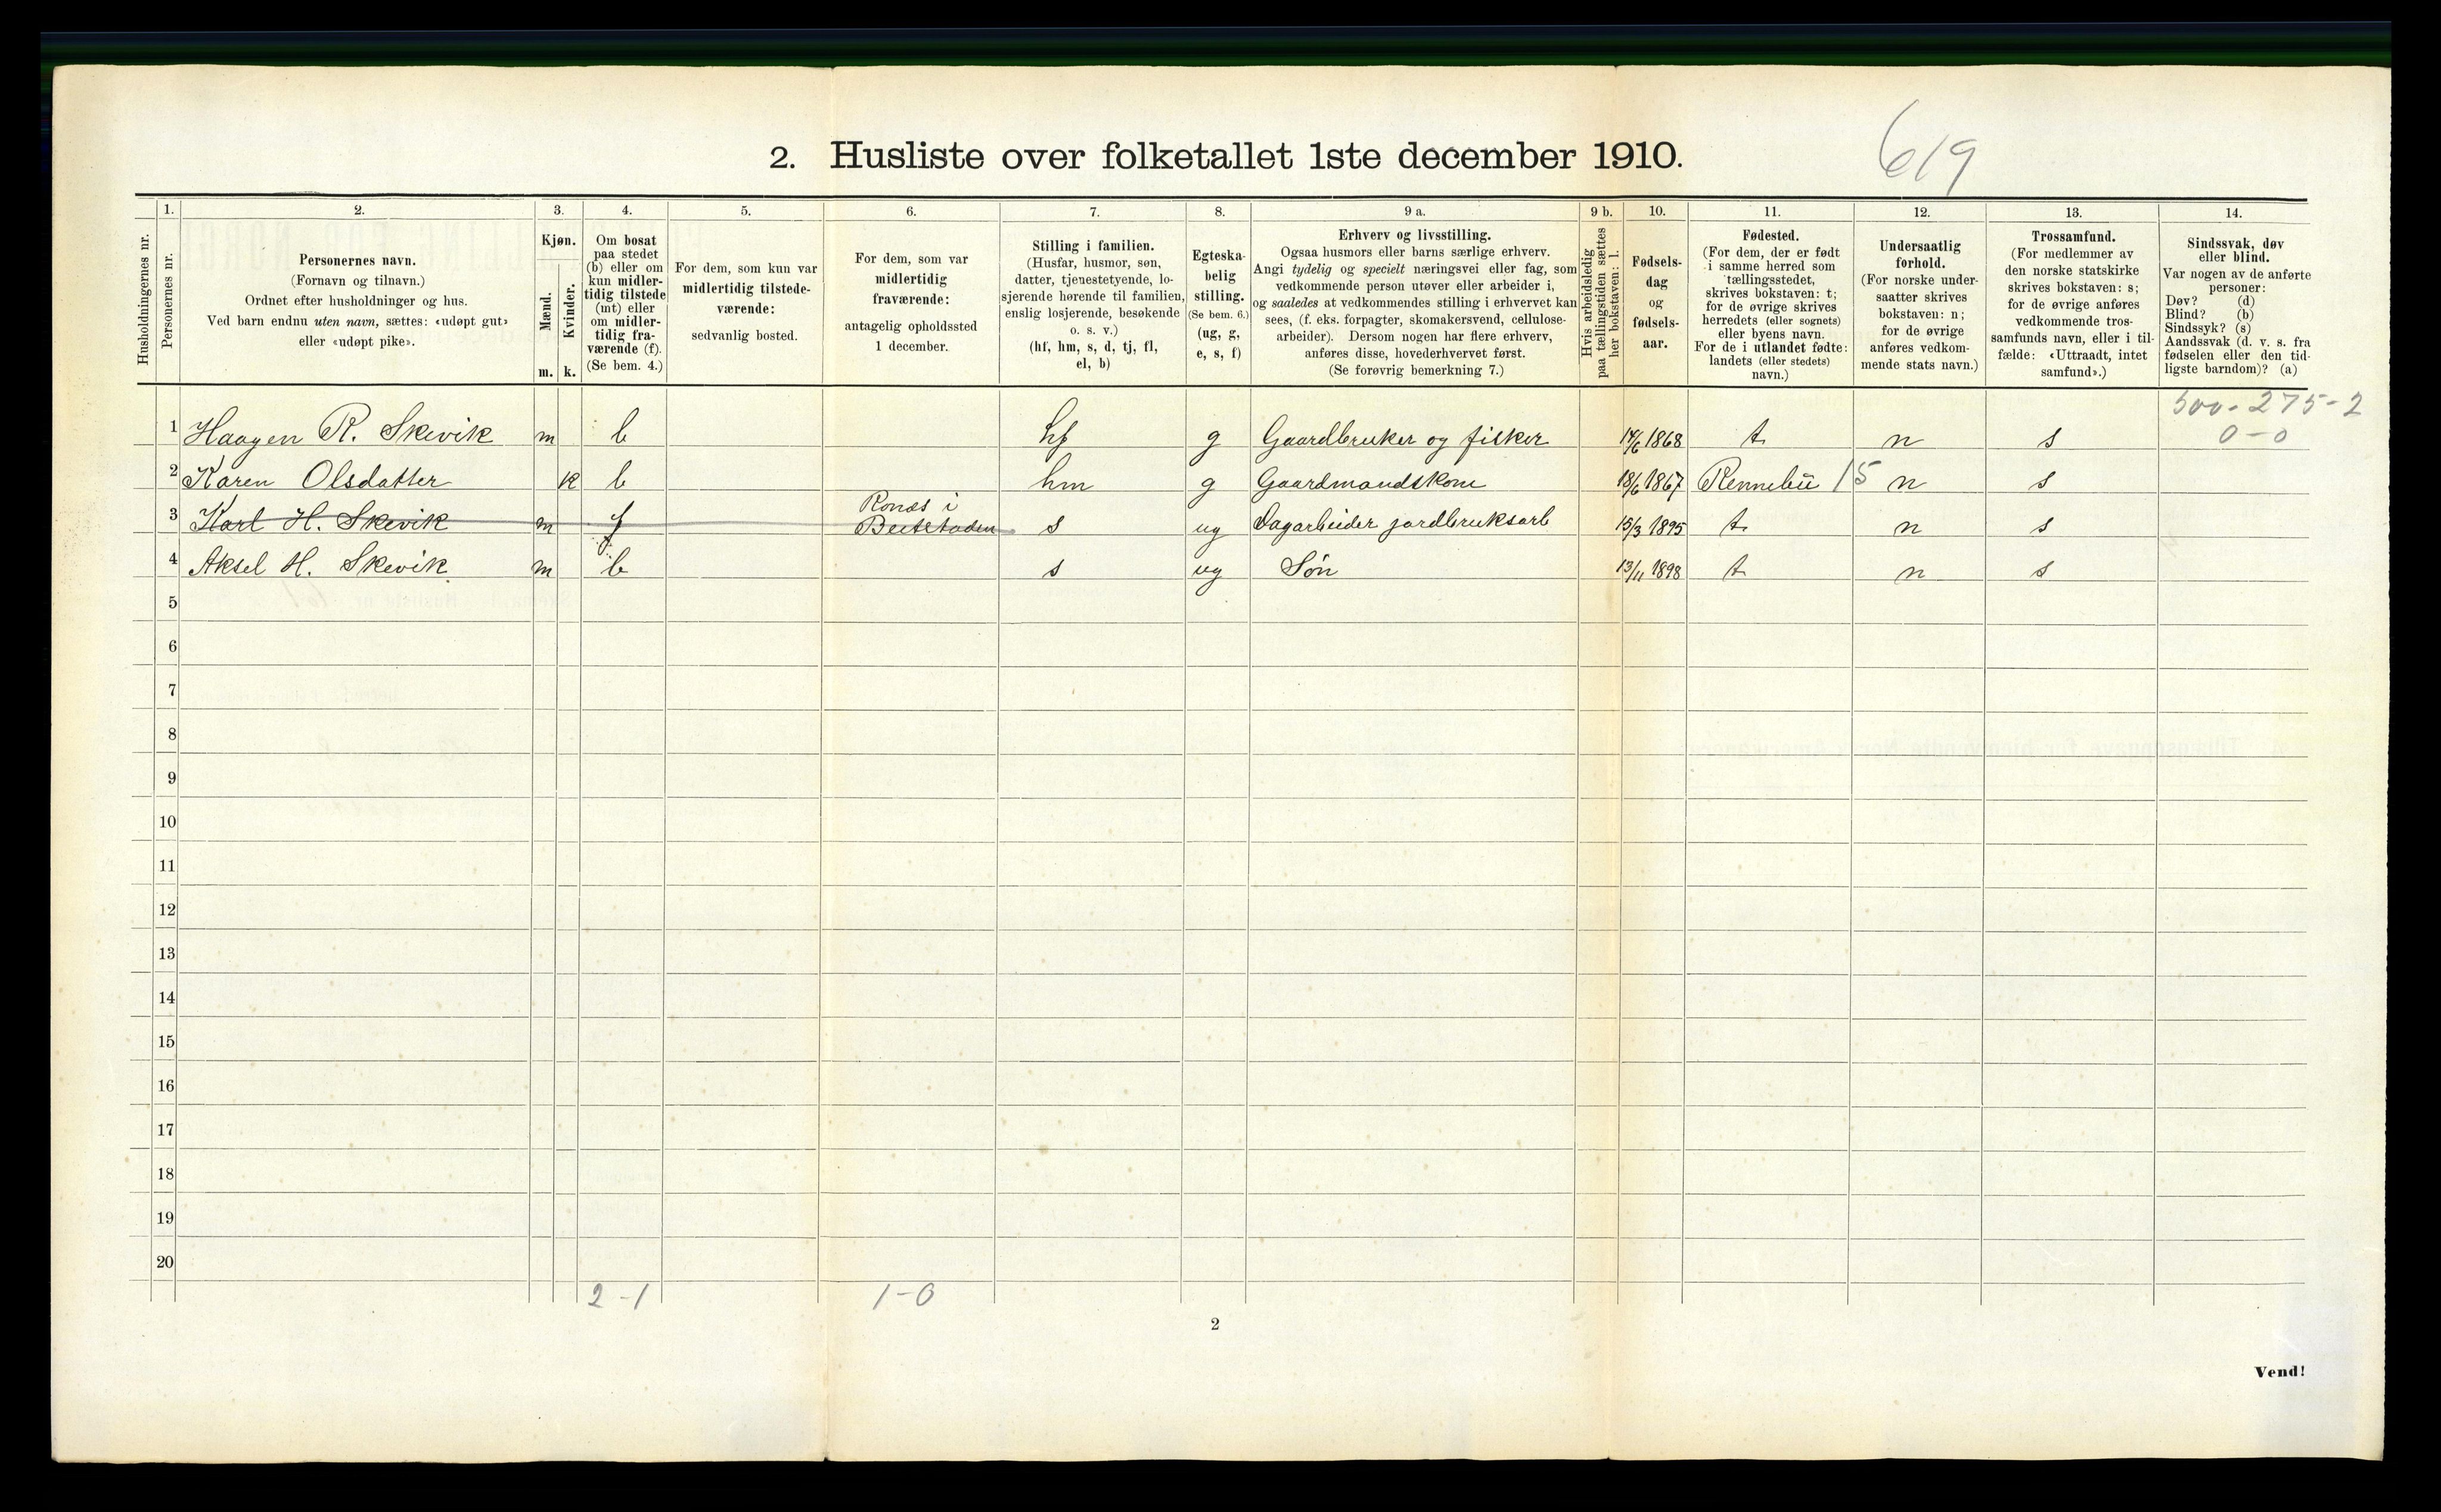 2. Husliste over folketallet 1ste december 1910.
619
1. 2. 3. 4. 5. 6. 7. 8. 9 a. 9 b. 10. 11. 12. 13. 14.
Husholdningernes nr.
Personernes nr.
Personernes navn.
(Fornavn og tilnavn.)
Ordnet efter husholdninger og hus.
Ved barn endnu uten navn, sættes: «udøpt gut»
eller «udøpt pike».
Kjøn.
Mænd.
Kvinder.
m. k.
Om bosat
paa stedet
(b) eller om
kun midler-
tidig tilstede
(mt) eller
om midler-
tidig fra-
værende (f).
(Se bem. 4.)
For dem, som kun var
midlertidig tilstede-
værende:
sedvanlig bosted.
For dem, som var
midlertidig
fraværende:
antagelig opholdssted
1 december.
Stilling i familien.
(Husfar, husmor, søn,
datter, tjenestetyende, lo-
sjerende hørende til familien,
enslig losjerende, besøkende
o. s. v.)
(hf, hm, s, d, tj, fl,
el, b)
Egteska-
belig
stilling.
(Se bem. 6.)
(ug, g,
e, s, f)
Erhverv og livsstilling.
Ogsaa husmors eller barns særlige erhverv.
Angi tydelig og specielt næringsvei eller fag, som
vedkommende person utøver eller arbeider i,
og saaledes at vedkommendes stilling i erhvervet kan
sees, (f. eks. forpagter, skomakersvend, cellulose-
arbeider). Dersom nogen har flere erhverv,
anføres disse, hovederhvervet først.
(Se forøvrig bemerkning 7.)
Hvis arbeidsledig
paa tællingstiden sættes
her bokstaven: l.
Fødsels-
dag
og
fødsels-
aar.
Fødested.
(For dem, der er født
i samme herred som
tællingsstedet,
skrives bokstaven: t;
for de øvrige skrives
herredets (eller sognets)
eller byens navn.
For de i utlandet fødte:
landets (eller stedets)
navn.)
Undersaatlig
forhold.
(For norske under-
saatter skrives
bokstaven: n;
for de øvrige
anføres vedkom-
mende stats navn.)
Trossamfund.
(For medlemmer av
den norske statskirke
skrives bokstaven: s;
for de øvrige anføres
vedkommende tros-
samfunds navn, eller i til-
fælde: «Uttraadt, intet
samfund».)
Sindssvak, døv
eller blind.
Var nogen av de anførte
personer:
Døv? (d)
Blind? (b)
Sindssyk? (s)
Aandssvak (d. v. s. fra
fødselen eller den tid-
ligste barndom)? (a)
500-275-2
0-0
1 Haagen R. Skevik m b hf g Gaardbruker og fisker 14/6 1868 t n s
2 Karen Olsdatter k b hm g Gaardmandskone 18/6 1867 Rennebu 15 n s
Ronæs i
3 Karl H. Skevik m f Beitstaden s ug Dagarbeider jordbruksarb 15/3 1895 t n s
4 Aksel H. Skevik m b s ug Søn 13/11 1898 t n s
5
6
7
8
9
10
11
12
13
14
15
16
17
18
19
20
2-1 1-0
2
Vend!